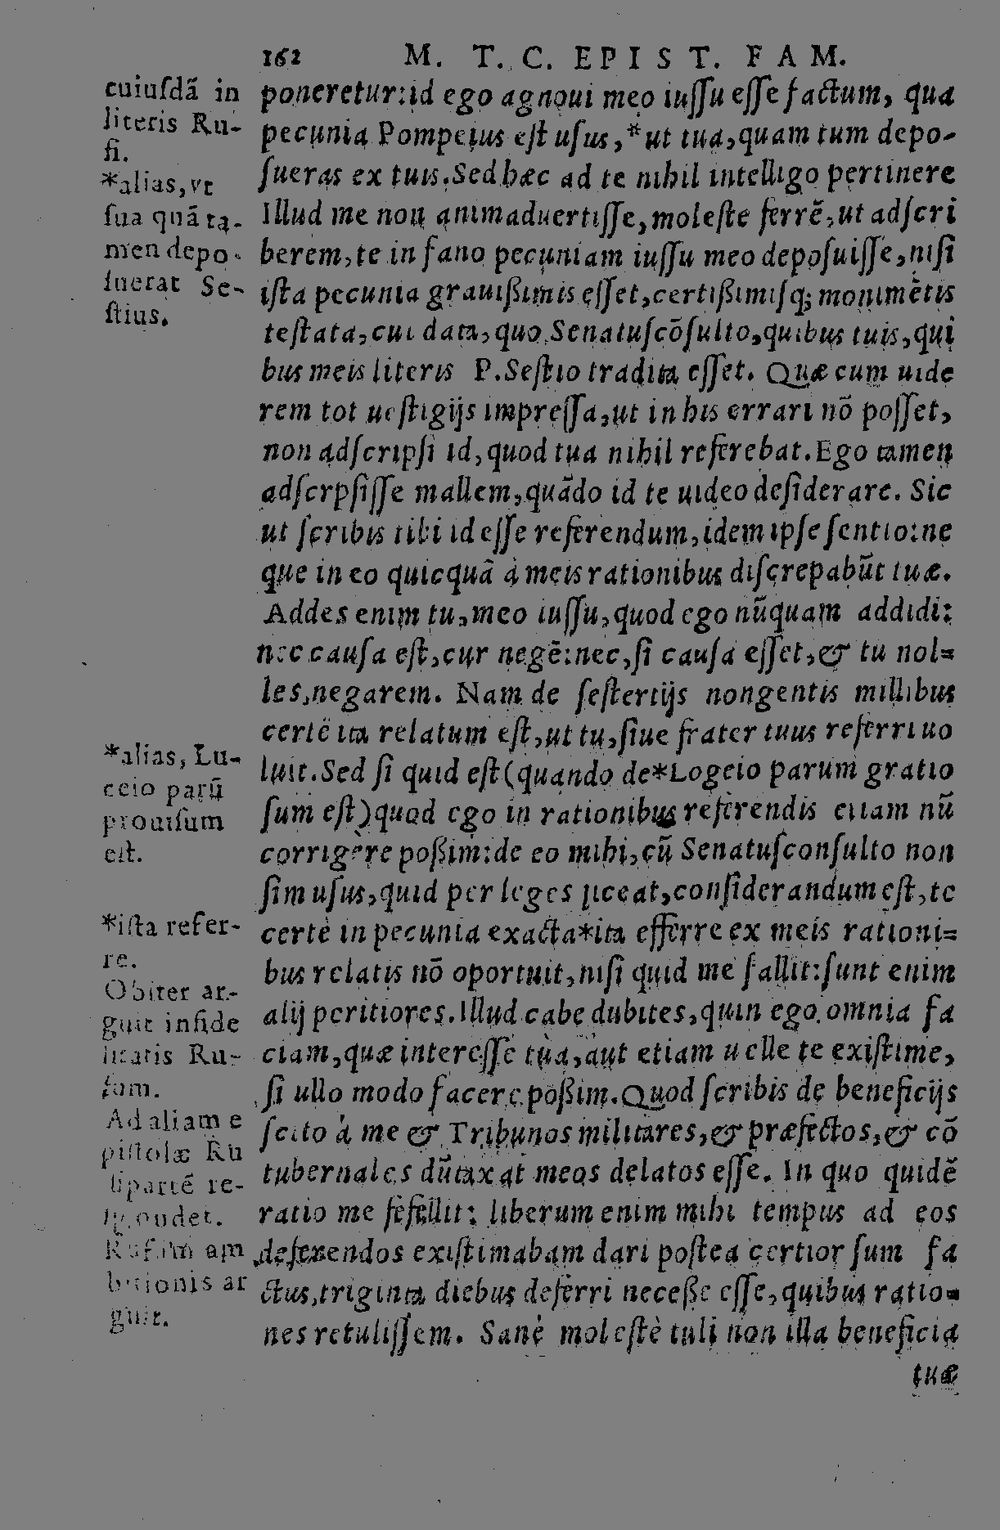 162 M. T. C. EPIST. FAM.
cuiuſdã in
literis Ru-
fi.
*alias, vt
ſua quã ta-
men depo-
ſuerat Se-
ſtius.
poneretur: id ego agnoui meo iuſſu eſſe factum, qua
pecunia Pompeius eſt uſus, *ut tua, quam tum depo-
ſueras ex tuis. Sed hæc ad te nihil intelligo pertinere
Illud me non animaduertiſſe, moleſte ferrē, ut adſcri
berem, te in fano pecuniam iuſſu meo depoſuiſſe, niſi
iſta pecunia grauißimis eſſet, certißimiſq; monimētis
teſtata, cui data, quo Senatuſcōſulto, quibus tuis, qui
bus meis literis P. Seſtio tradita eſſet. Quæ cum uide
rem tot ueſtigijs impreſſa, ut in his errari nō poſſet,
non adſcripſi id, quod tua nihil referebat. Ego tamen
adſcrpſiſſe mallem, quãdo id te uideo deſiderare. Sic
ut ſcribis tibi id eſſe referendum, idem ipſe ſentio: ne
que in eo quicquã à meis rationibus diſcrepabũt tuæ.
Addes enim tu, meo iuſſu, quod ego nũquam addidi:
nec cauſa eſt, cur negē: nec, ſi cauſa eſſet, & tu nol=
les, negarem. Nam de ſeſtertijs nongentis millibus
certè ita relatum eſt, ut tu, ſiue frater tuus referri uo
luit. Sed ſi quid eſt (quando de *Logeio parum gratio
ſum eſt) quod ego in rationibus referendis etiam nũ
corrigère poßim: de eo mihi, cũ Senatuſconſulto non
ſim uſus, quid per leges liceat, conſiderandum eſt, te
certè in pecunia exacta *ita efferre ex meis rationi=
bus relatis nō oportuit, niſi quid me fallit: ſunt enim
alij peritiores. Illud cabe dubites, quin ego omnia fa
ciam, quæ intereſſe tua, aut etiam uelle te exiſtime,
ſi ullo modo facere poßim. Quod ſcribis de beneficijs
ſcito à me & Tribunos militares, & præfectos, & cō
tubernales dũtaxat meos delatos eſſe. In quo quidē
ratio me fefellit: liberum enim mihi tempus ad eos
deferendos exiſtimabam dari poſtea certior ſum fa
ctus, triginta diebus deferri neceße eſſe, quibus ratio=
nes retuliſſem. Sanè moleſtè tuli non illa beneficia
tuæ
*alias, Lu-
ceio parũ
prouiſum
eſt.
*iſta refer-
re.
Obiter ar-
guit infide
litatis Ru-
fum.
Ad aliam e
piſtolæ Ru
fi partē re-
ſpondet.
Rufum am
bitionis ar
guit.